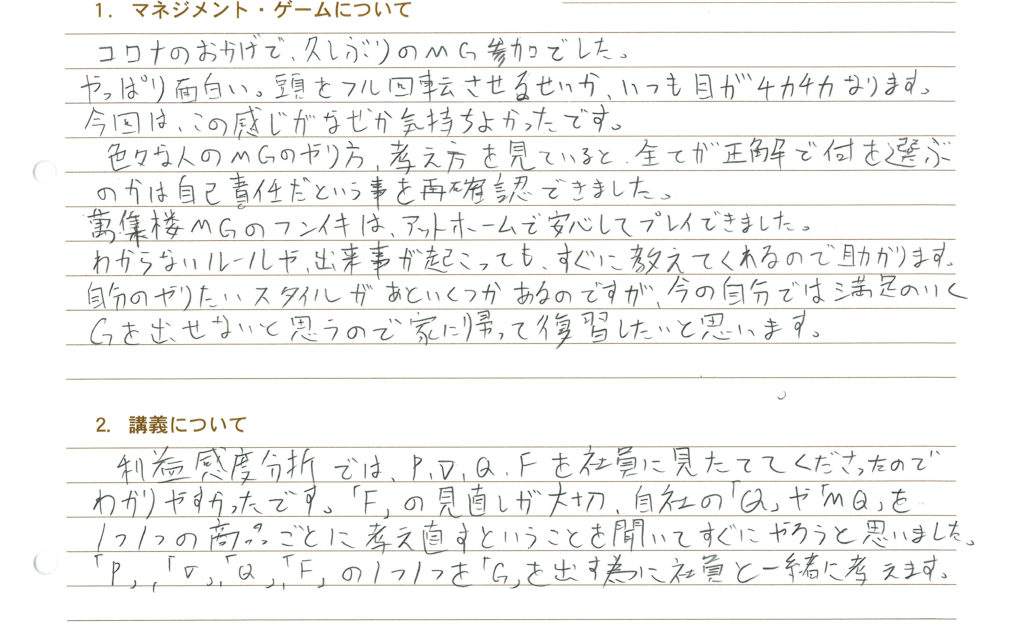 1. マネジメント・ゲームについて
コロナのおかげで、久しぶりのMG参加でした。
やっぱり面白い。頭をフル回転させるせいか、いつも目がチカチカなります。
今回は、この感じがなぜか気持ちよかったです。
色々な人のMGのやり方、考え方を見ていると、全てが正解で何を選ぶ
のかは自己責任だという事を再確認できました。
萬集楼MGのフンイキは、アットホームで安心してプレイできました。
わからないルールや、出来事が起こっても、すぐに教えてくれるので助かります。
自分のやりたいスタイルがあといくつかあるのですが、今の自分では満足のいく
Gを出せないと思うので家に帰って復習したいと思います。
2. 講義について
利益感度分析では、P、V、Q、Fを社員に見たててくださったので
わかりやすかったです。「F」の見直しが大切、自社の「Q」や「MQ」を
1つ1つの商品ごとに考え直すということを聞いてすぐにやろうと思いました。
「P」,「V」,「Q」,「F」の1つ1つを「G」を出す為に社員と一緒に考えます。